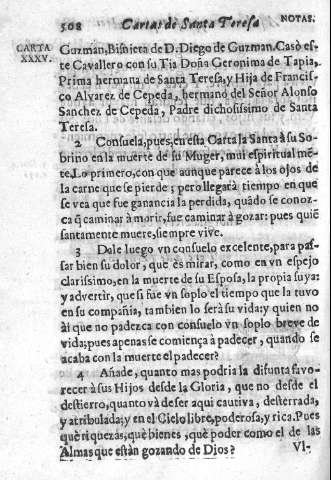 508 Cartas de Santa Teresa NOTAS.
CARTA XXXV.
Guzman, Bisnieta de D. Diego de Guzman. Casò es-
te Cavallero con su Tia Doña Geronima de Tapia,
Prima hermana de Santa Teresa, y Hija de Francis-
ço Alvarez de Cepeda, hermano del Señor Alonso
Sanchez de Cepeda, Padre dichosissimo de Santa
Teresa.
2 Consuela, pues, en esta Carta la Santa à su So-
brino en la muerte de su Muger, mui espiritual mē-
te. Lo primero, con que aunque parece à los ojos de
la carne que se pierde; pero llegarà tiempo en que
se vea que fue ganancia la perdida, quādo se conoz-
ca q̄ caminar à morir, fue caminar à gozar: pues quiē
santamente muere, siempre vive.
3 Dale luego vn consuelo excelente, para pas-
sar bien su dolor, que es mirar, como en vn espejo
clarissimo, en la muerte de su Esposa, la propia suya:
y advertir, que si fue vn soplo el tiempo que la tuvo
en su compañia, tambien lo serà su vida: y quien no
ài que no padezca con consuelo vn soplo breve de
vida; pues apenas se comiença à padecer, quando se
acaba con la muerte el padecer?
4 Añade, quanto mas podria la difunta favo-
recer à sus Hijos desde la Gloria, que no desde el
destierro, quanto và de ser aqui cautiva, desterrada,
y atribulada; y en el Cielo libre, poderosa, y rica. Pues
què riquezas, què bienes, què poder como el de las
Almas que estàn gozando de Dios? VI-